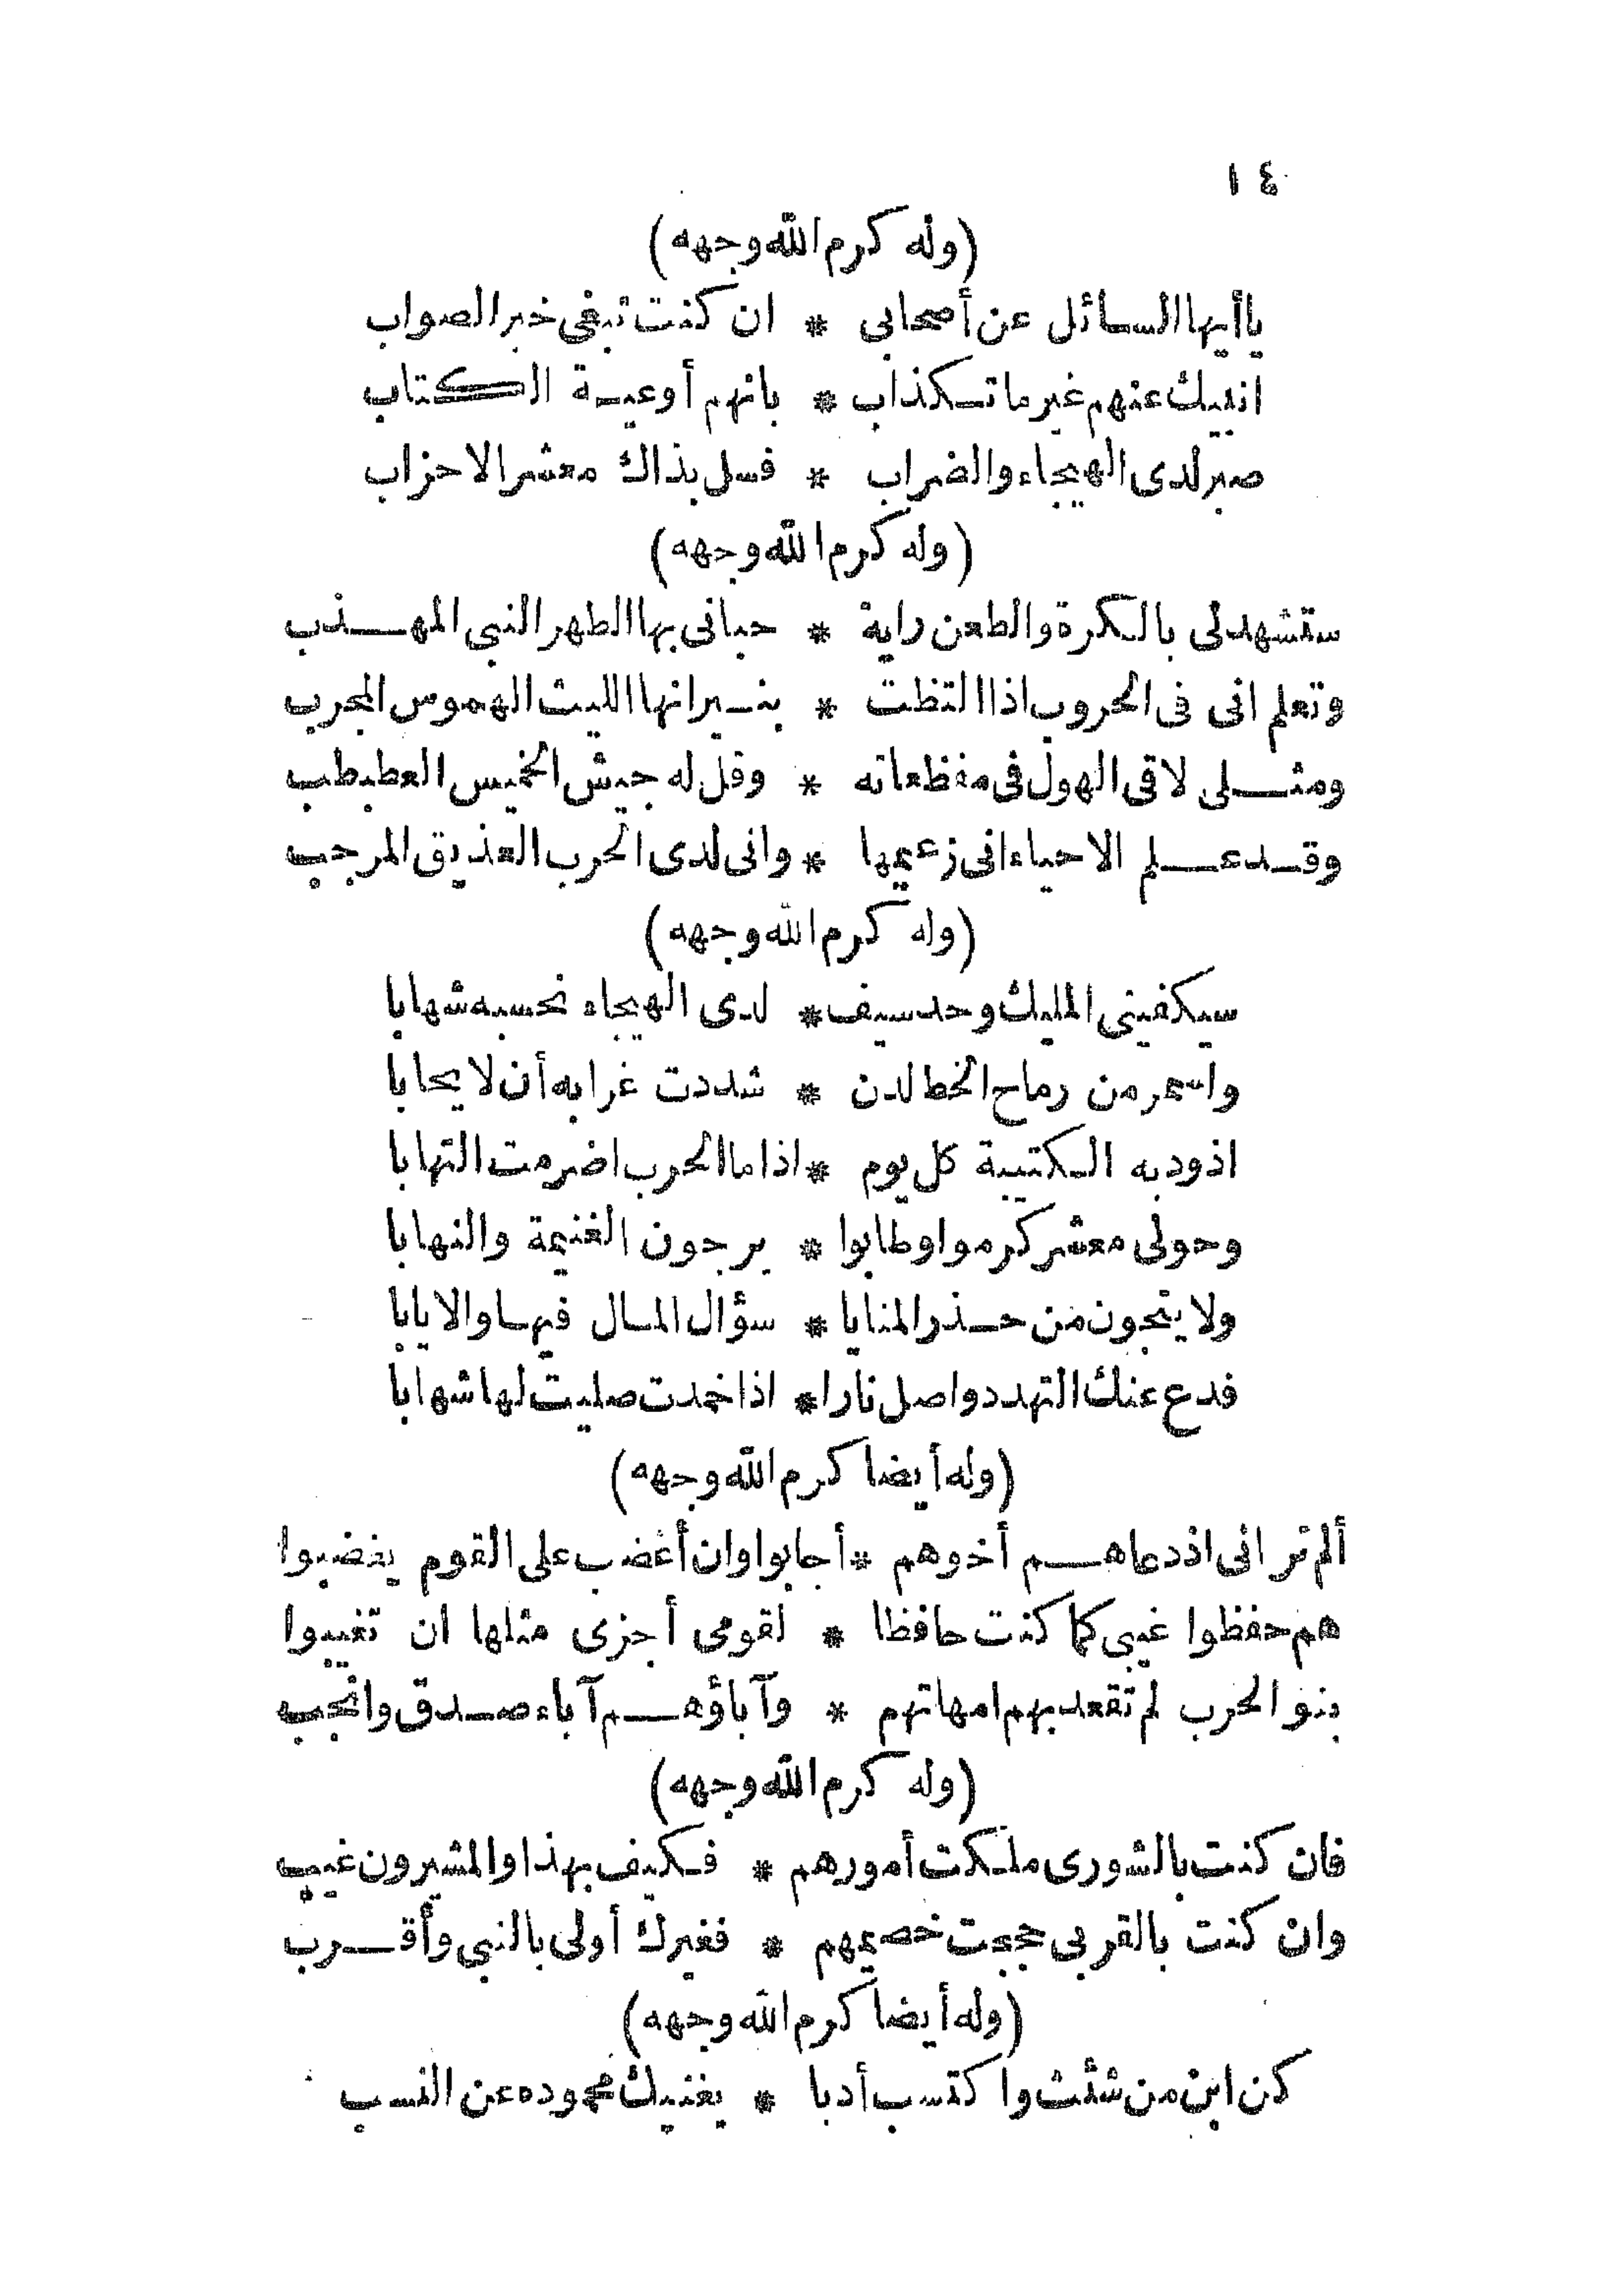 ١٤
(وله كرم الله وجهه)
يا أيها السائل عن أصحابى * ان كنت تبغى خبر الصواب
انبيك عنهم غير ما تكذاب * بانهم أوعية الكتاب
صبر لدى الهيجاء والضراب * فسل بذاك معشر الاحزاب
(وله كرم الله وجهه)
ستشهد لى بالكرة والطعن راية * حبانى بها الطهر النبى المهذب
وتعلم انى فى الحروب اذا التظت * بنيرانها الليث الهموس المجرب
ومثلى لاقى الهول فى مفظعاته * وقل له جيش الخميس العطبطب
وقد علم الاحياء انى زعيمها * وانى لدى الحرب العذيق المرجب
(وله كرم الله وجهه)
سيكفينى المليك وحد سيف * لدى الهيجاء تحسبه شهابا
واسمر من رماح الخط لدن * شددت غرابه أن لا يحابا
اذود به الكتيبة كل يوم * اذا ما الحرب اضرمت التهابا
وحولى معشر كرموا وطابوا * يرجون الغنيمة والنهابا
ولا ينجون من حذر المنايا * سؤال المال فيها والايابا
فدع عنك التهدد واصل نارا * اذا خمدت صليت لها شهابا
(وله أيضا كرم الله وجهه)
ألم تر انى اذ دعاهم أخوهم * أجابوا وان أغضب على القوم يغضبوا
هم حفظوا غيبى كما كنت حافظا * لقومى أجزى مثلها ان تغيبوا
بنو الحرب لم تقعد بهم امهاتهم * وآباؤهم آباء صدق وانجب
(وله كرم الله وجهه)
فان كنت بالشورى ملكت أمورهم * فكيف بهذا والمشيرون غيب
وان كنت بالقربى حججت خصيمهم * فغيرك أولى بالنبى وأقرب
(وله أيضا كرم الله وجهه)
كن ابن من شئت واكتسب أدبا * يغنيك محموده عن النسب